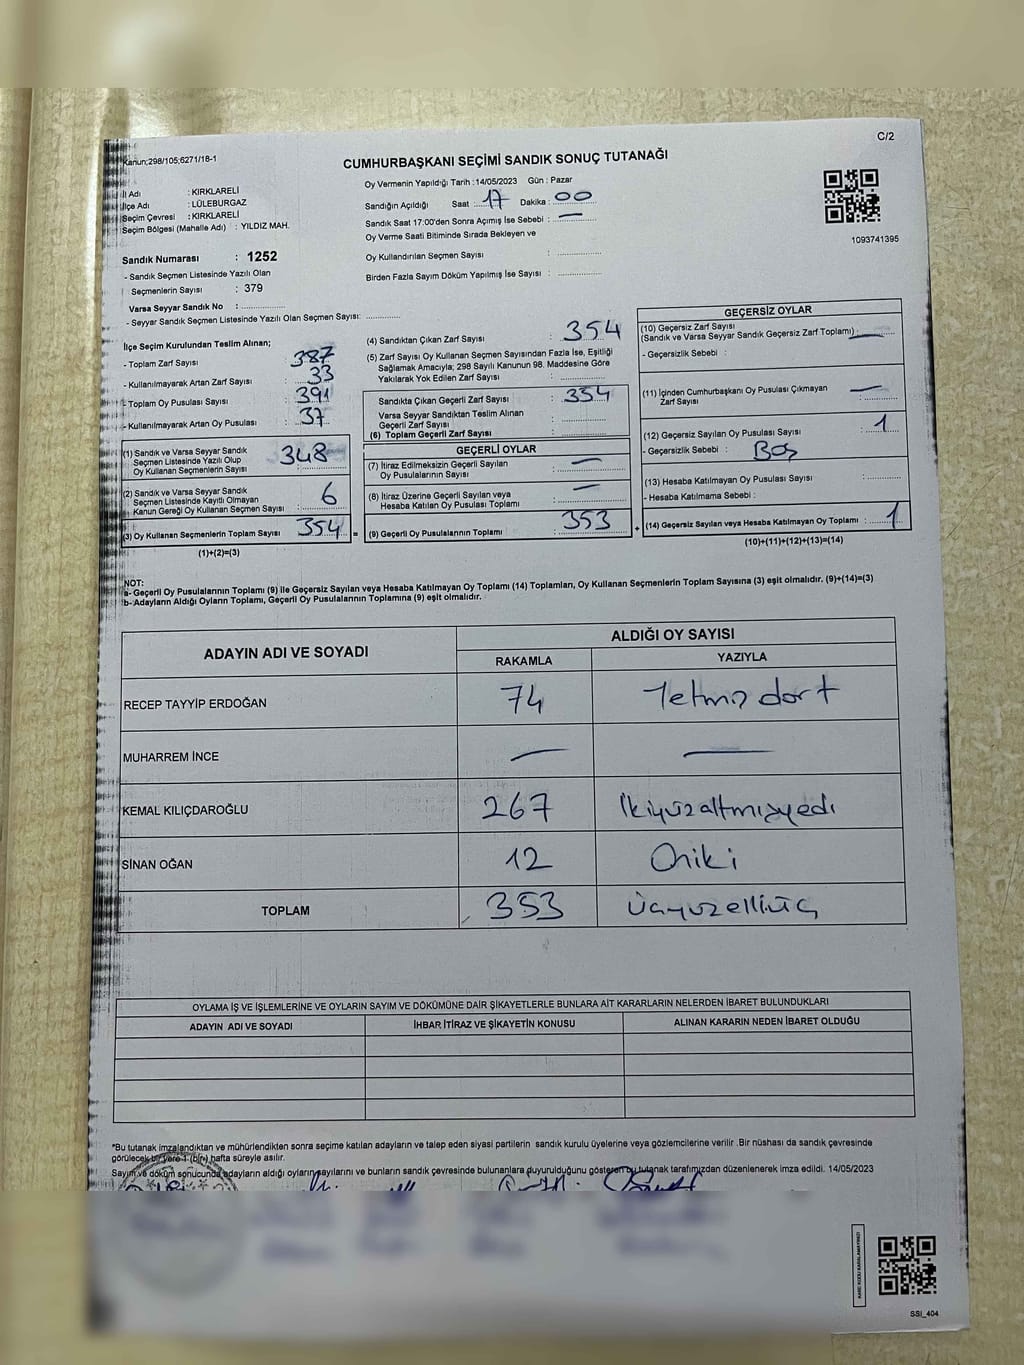 C/2
Kanun;298/105;6271/18-1
CUMHURBAŞKANI SEÇİMİ SANDIK SONUÇ TUTANAĞI
İl Adı : KIRKLARELİ
İlçe Adı : LÜLEBURGAZ
Seçim Çevresi : KIRKLARELİ
Seçim Bölgesi (Mahalle Adı) : YILDIZ MAH.
Oy Vermenin Yapıldığı Tarih : 14/05/2023 Gün : Pazar
Sandığın Açıldığı Saat : 17 Dakika : 00
Sandık Saat 17:00'den Sonra Açımış İse Sebebi : —
Oy Verme Saati Bitiminde Sırada Bekleyen ve
Oy Kullandırılan Seçmen Sayısı :
Birden Fazla Sayım Döküm Yapılmış İse Sayısı :
1093741395
Sandık Numarası : 1252
- Sandık Seçmen Listesinde Yazılı Olan
Seçmenlerin Sayısı : 379
Varsa Seyyar Sandık No :
- Seyyar Sandık Seçmen Listesinde Yazılı Olan Seçmen Sayısı:
İlçe Seçim Kurulundan Teslim Alınan;
- Toplam Zarf Sayısı : 387
- Kullanılmayarak Artan Zarf Sayısı : 33
- Toplam Oy Pusulası Sayısı : 391
- Kullanılmayarak Artan Oy Pusulası : 37
(1) Sandık ve Varsa Seyyar Sandık
Seçmen Listesinde Yazılı Olup
Oy Kullanan Seçmenlerin Sayısı : 348
(2) Sandık ve Varsa Seyyar Sandık
Seçmen Listesinde Kayıtlı Olmayan
Kanun Gereği Oy Kullanan Seçmen Sayısı : 6
(3) Oy Kullanan Seçmenlerin Toplam Sayısı : 354 =
(1)+(2)=(3)
(4) Sandıktan Çıkan Zarf Sayısı : 354
(5) Zarf Sayısı Oy Kullanan Seçmen Sayısından Fazla İse, Eşitliği
Sağlamak Amacıyla; 298 Sayılı Kanunun 98. Maddesine Göre
Yakılarak Yok Edilen Zarf Sayısı :
Sandıkta Çıkan Geçerli Zarf Sayısı : 354
Varsa Seyyar Sandıktan Teslim Alınan
Geçerli Zarf Sayısı :
(6) Toplam Geçerli Zarf Sayısı :
GEÇERLİ OYLAR
(7) İtiraz Edilmeksizin Geçerli Sayılan
Oy Pusulasının Sayısı : —
(8) İtiraz Üzerine Geçerli Sayılan veya
Hesaba Katılan Oy Pusulası Toplamı : —
(9) Geçerli Oy Pusulalarının Toplamı : 353 +
GEÇERSİZ OYLAR
(10) Geçersiz Zarf Sayısı
(Sandık ve Varsa Seyyar Sandık Geçersiz Zarf Toplamı) : —
- Geçersizlik Sebebi :
(11) İçinden Cumhurbaşkanı Oy Pusulası Çıkmayan
Zarf Sayısı : —
(12) Geçersiz Sayılan Oy Pusulası Sayısı : 1
- Geçersizlik Sebebi : Boş
(13) Hesaba Katılmayan Oy Pusulası Sayısı :
- Hesaba Katılmama Sebebi :
(14) Geçersiz Sayılan veya Hesaba Katılmayan Oy Toplamı : 1
(10)+(11)+(12)+(13)=(14)
NOT:
a- Geçerli Oy Pusulalarının Toplamı (9) ile Geçersiz Sayılan veya Hesaba Katılmayan Oy Toplamı (14) Toplamları, Oy Kullanan Seçmenlerin Toplam Sayısına (3) eşit olmalıdır. (9)+(14)=(3)
b- Adayların Aldığı Oyların Toplamı, Geçerli Oy Pusulalarının Toplamına (9) eşit olmalıdır.
ADAYIN ADI VE SOYADI ALDIĞI OY SAYISI
RAKAMLA YAZIYLA
RECEP TAYYİP ERDOĞAN 74 Yetmiş dört
MUHARREM İNCE — —
KEMAL KILIÇDAROĞLU 267 İkiyüzaltmışyedi
SİNAN OĞAN 12 Oniki
TOPLAM 353 Üçyüzelliüç
OYLAMA İŞ VE İŞLEMLERİNE VE OYLARIN SAYIM VE DÖKÜMÜNE DAİR ŞİKAYETLERLE BUNLARA AİT KARARLARIN NELERDEN İBARET BULUNDUKLARI
ADAYIN ADI VE SOYADI İHBAR İTİRAZ VE ŞİKAYETİN KONUSU ALINAN KARARIN NEDEN İBARET OLDUĞU
*Bu tutanak imzalandıktan ve mühürlendikten sonra seçime katılan adayların ve talep eden siyasi partilerin sandık kurulu üyelerine veya gözlemcilerine verilir .Bir nüshası da sandık çevresinde
görülecek bir yere 1 (bir) hafta süreyle asılır.
Sayım ve döküm sonucunda adayların aldığı oyların sayılarını ve bunların sandık çevresinde bulunanlara duyurulduğunu gösteren bu tutanak tarafımızdan düzenlenerek imza edildi. 14/05/2023
KARE KODU KARALAMAYINIZ!
SSI_404